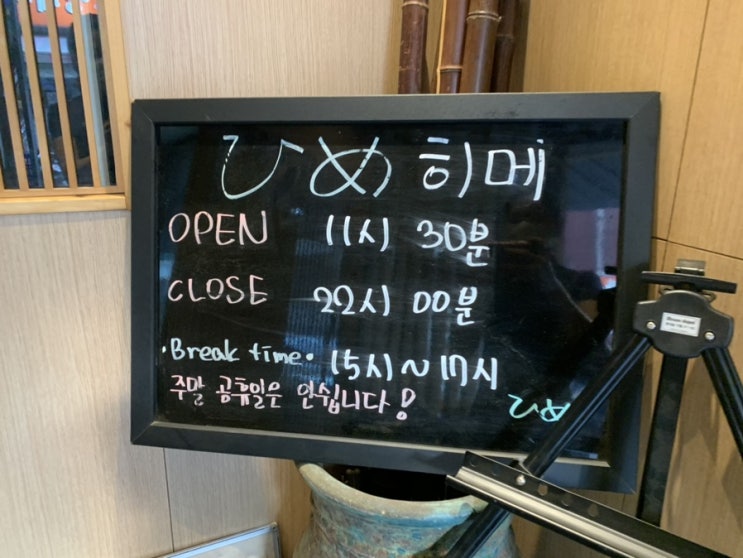 ひめ 히메
OPEN 11시 30분
CLOSE 22시 00분
·Break time· 15시~17시
주말 공휴일은 안쉽니다!
ひめ